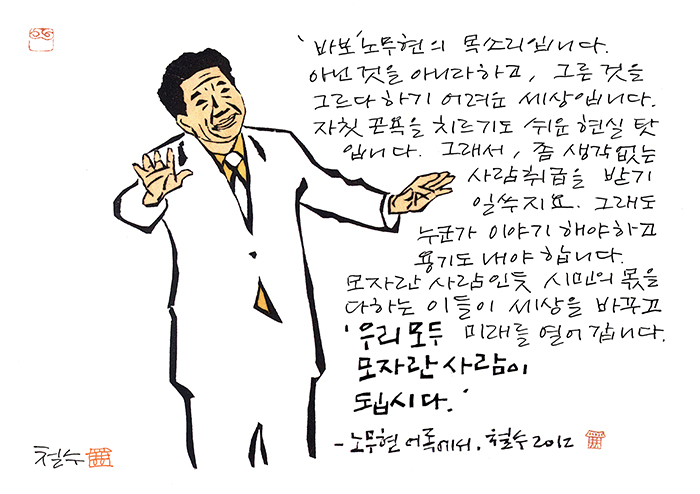 '바보' 노무현의 목소리입니다.
아닌 것을 아니라하고, 그른 것을
그르다 하기 어려운 세상입니다.
자칫 곤욕을 치르기도 쉬운 현실 탓
입니다. 그래서, 좀 생각없는
사람취급을 받기
일쑤지요. 그래도
누군가 이야기 해야하고
용기도 내야 합니다.
모자란 사람인듯 시민의 몫을
다하는 이들이 세상을 바꾸고
'우리 모두 미래를 열어 갑니다.
모자란 사람이
됩시다.'
- 노무현 어록에서. 철수 2012
철수